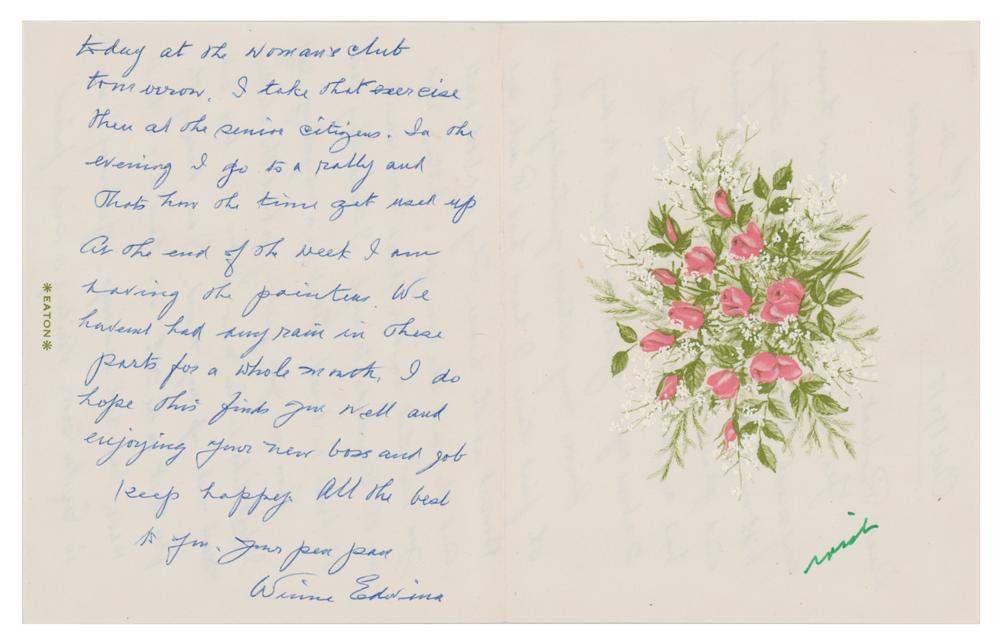 today at the Woman's club
tomorrow. I take that exercise
then at the senior citizens. In the
evening I go to a rally and
Thats how the time get used up
At the end of the week I am
having the painters. We
havent had any rain in these
parts for a whole month. I do
hope this finds you well and
enjoying your new boss and job
keep happy. All the best
to you. Your pen pal
Winne Edwina
*EATON*